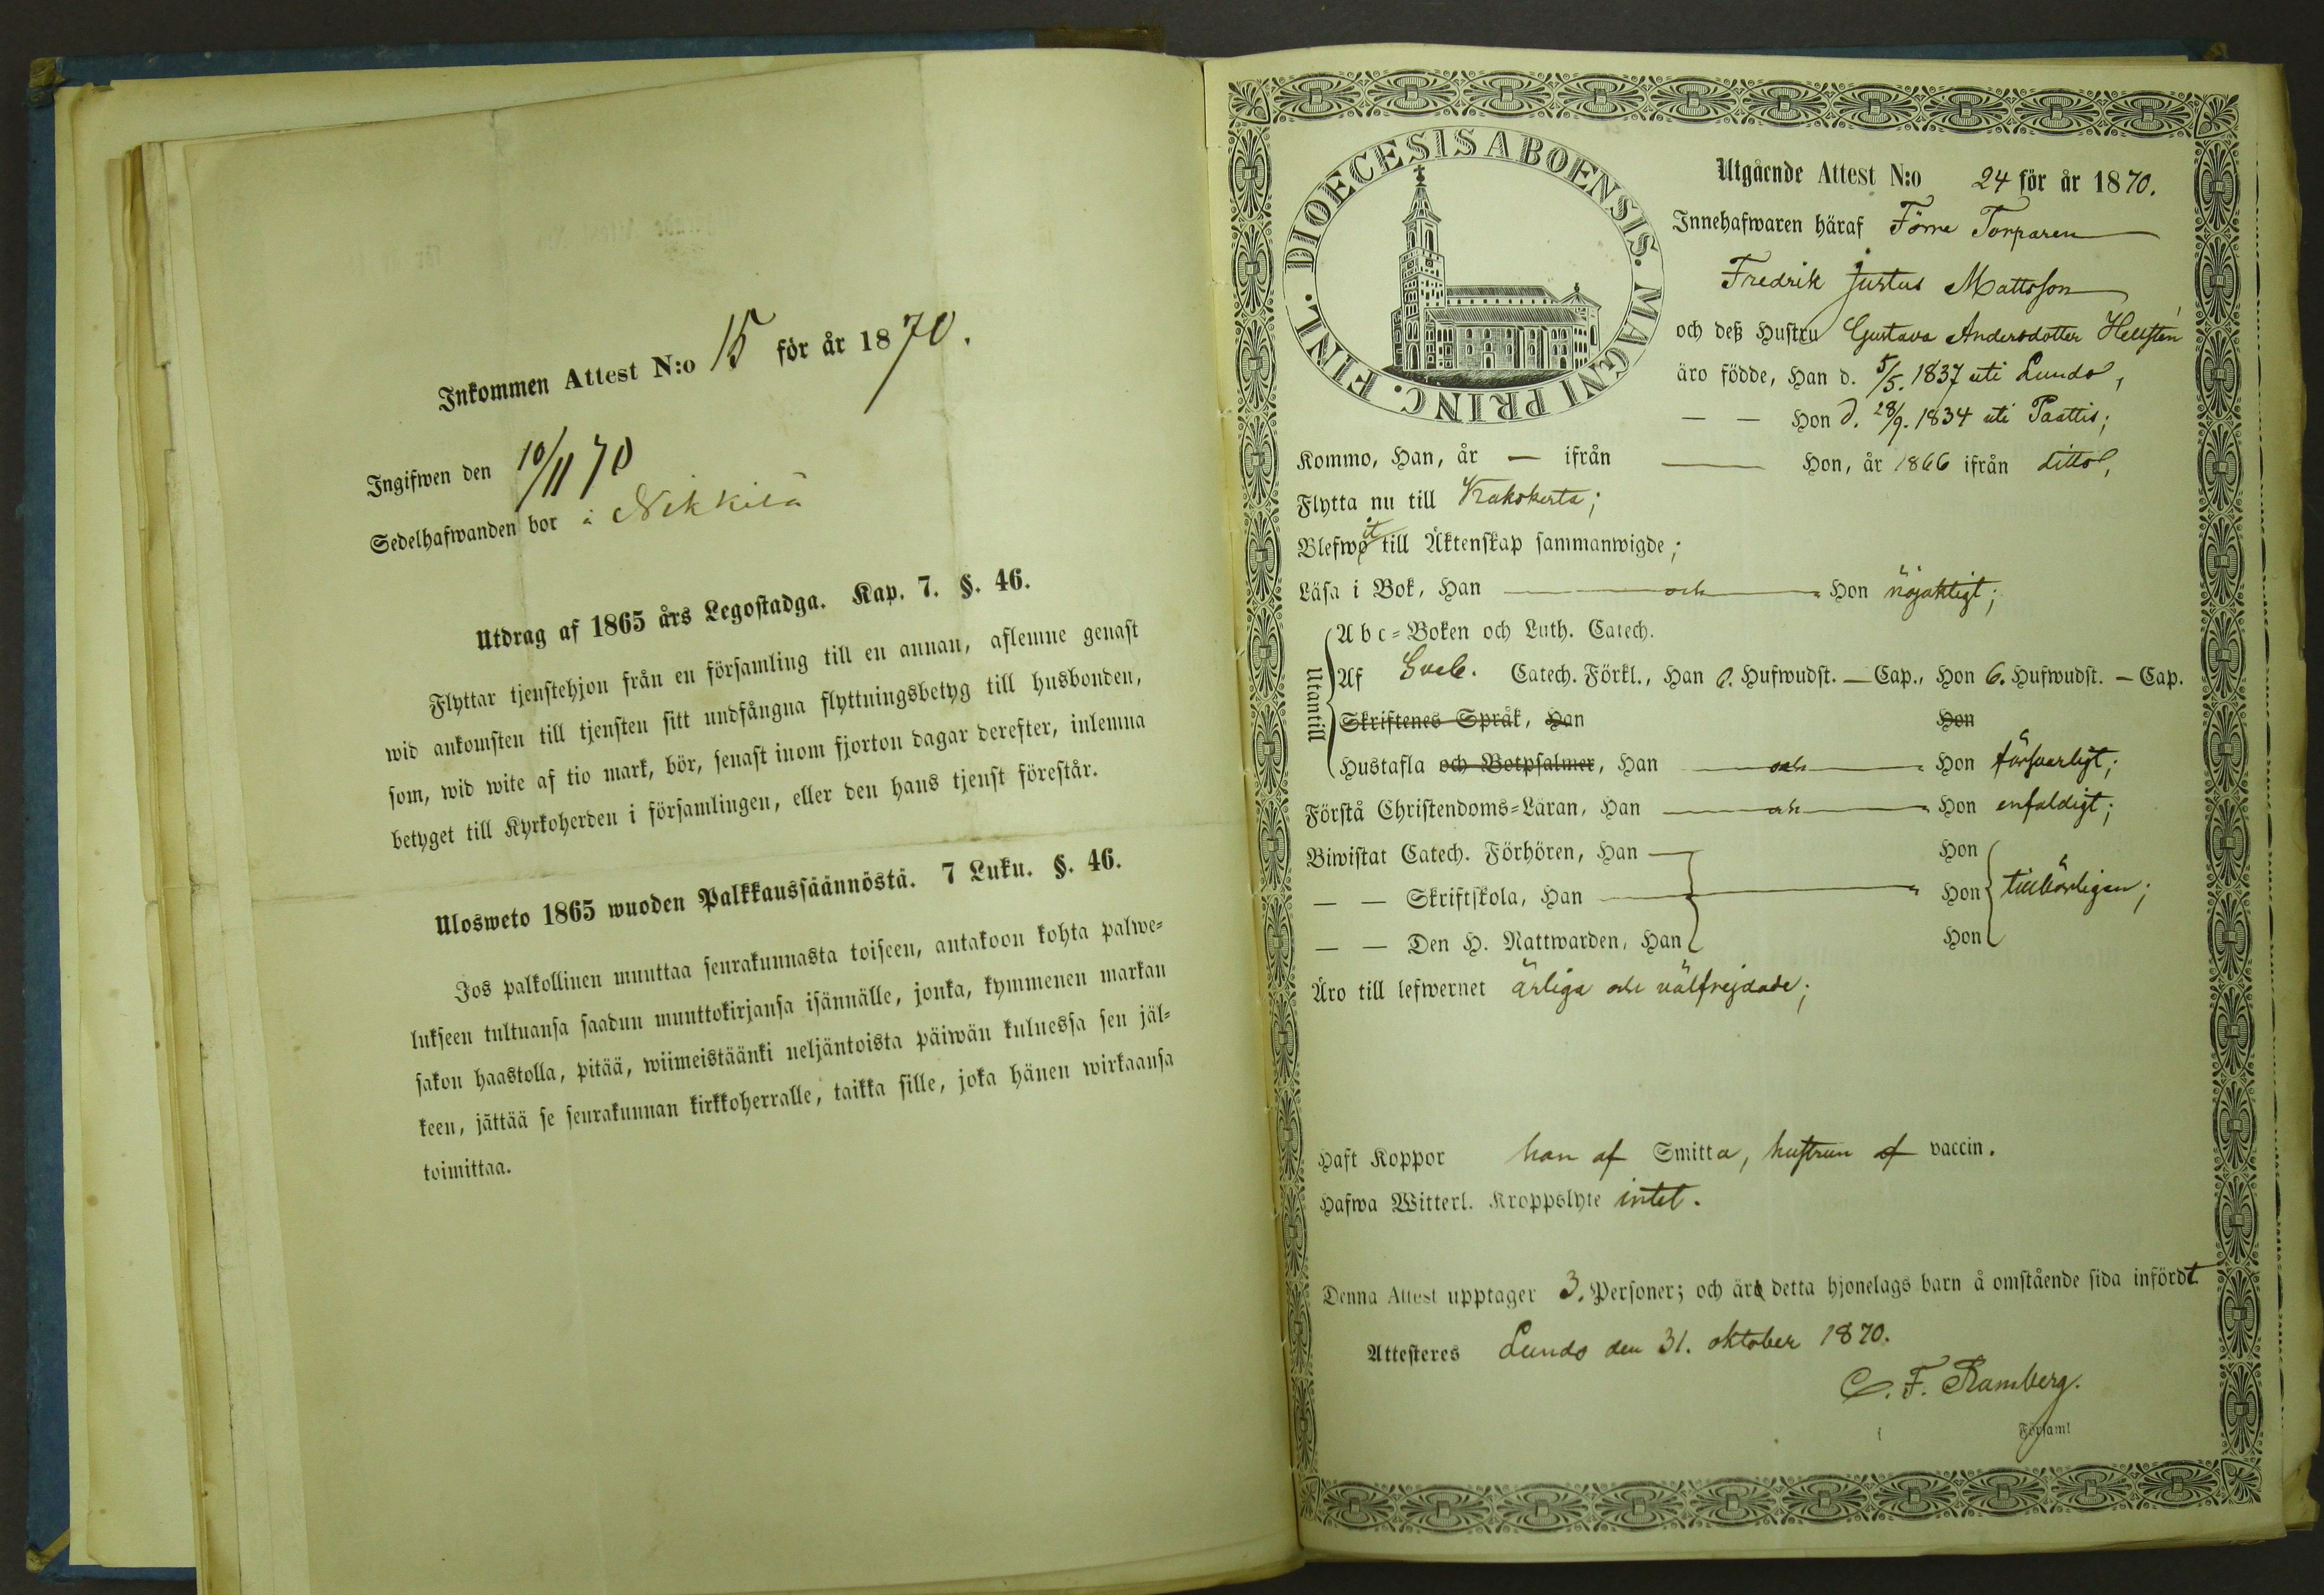 Inkommen Attest N:o 15 för år 1870.
Ingifwen den 10/11 70
Sedelhafwanden bor å Nikkilä
Utdrag af 1865 års Legostadga. Kap. 7. §. 46.
Flyttar tjenstehjon från en församling till en annan, aflemne genast
wid ankomsten till tjensten sitt undfångna flyttningsbetyg till husbonden,
som, wid wite af tio mark, bör, senast inom fjorton dagar derefter, inlemna
betyget till Kyrkoherden i församlingen, eller den hans tjenst förestår.
Ulosweto 1865 wuoden Palkkaussäännöstä. 7 Luku. §. 46.
Jos palkollinen muuttaa seurakunnasta toiseen, antakoon kohta palwe-
lukseen tultuansa saadun muuttokirjansa isännälle, jonka, kymmenen markan
sakon haastolla, pitää, wiimeistäänki neljäntoista päiwän kuluessa sen jäl-
keen, jättää se seurakunnan kirkkoherralle, taikka sille, joka hänen wirkaansa
toimittaa.
DIOECESIS ABOENSIS. MAGNI PRINC. FINL.
Utgående Attest N:o 24 för år 1870.
Innehafwaren häraf Förre Torparen
Fredrik Justus Mattsson
och deß Hustru Gustava Andersdotter Hellstén
äro födde, Han d. 5/5. 1837 uti Lundo,
— — Hon d. 28/9. 1834 uti Paattis;
Kommo, Han, år — ifrån — Hon, år 1866 ifrån ditto,
Flytta nu till Kakskerta;
Blefwo till Äktenskap sammanwigde;
Läsa i Bok, Han — och — Hon nöjaktigt;
Utantill
Abc-Boken och Luth. Catech.
Af Sveb. Catech. Förkl., Han 6. Hufwudst. — Cap., Hon 6. Hufwudst. — Cap.
Skriftenes Språk, Han Hon
Hustafla och Botpsalmer, Han — och — Hon försvarligt;
Förstå Christendoms-Läran, Han — och — Hon enfaldigt;
Biwistat Catech. Förhören, Han — Hon
— — Skriftskola, Han — Hon tillbörligen;
— — Den H. Nattwarden, Han Hon
Äro till lefwernet ärliga och välfrejdade;
Haft Koppor han af Smitta, hustrun af vaccin.
Hafwa Witterl. Kroppslyte intet.
Denna Attest upptager 3. Personer; och är detta hjonelags barn å omstående sida infördt.
Attesteres Lundo den 31. oktober 1870.
C. F. Ramberg.
i Församl